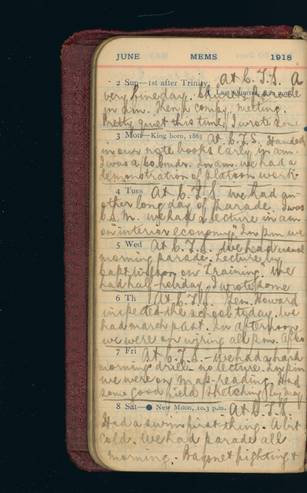 JUNE MEMS 1918
2 Sun—1st after Trinity. At C.T.S. A
very fine day. Church parade
in a.m. Hemp
Pretty quiet this time. I wrote
3 Mon—King born, 1865 At C.T.S. Handed
in our note books early in a.m.
I was a In a.m. we had a
demonstration of platoon work
4 Tues At C.T.S. We had an-
other long day of parade. I was
C.S.M. We had a lecture in a.m.
on "interior economy". In p.m. we
5 Wed At C.T.S. We had usual
morning parade. Lecture by
Capt. on Training. We
had half-holiday. I wrote some
6 Th At C.T.S. Gen. Howard
inspected the school today. We
had march past. In afternoon
we were on wiring all p.m.
7 Fri
At C.T.S. - We had a hard
morning drill no lecture. In p.m.
we were on map-reading. Had
some good field sketching
8 Sat—● New Moon, 10.3 p.m. At C.T.S.
Had a swim first thing. A bit
cold. We had parade all
morning. Bayonet fighting &